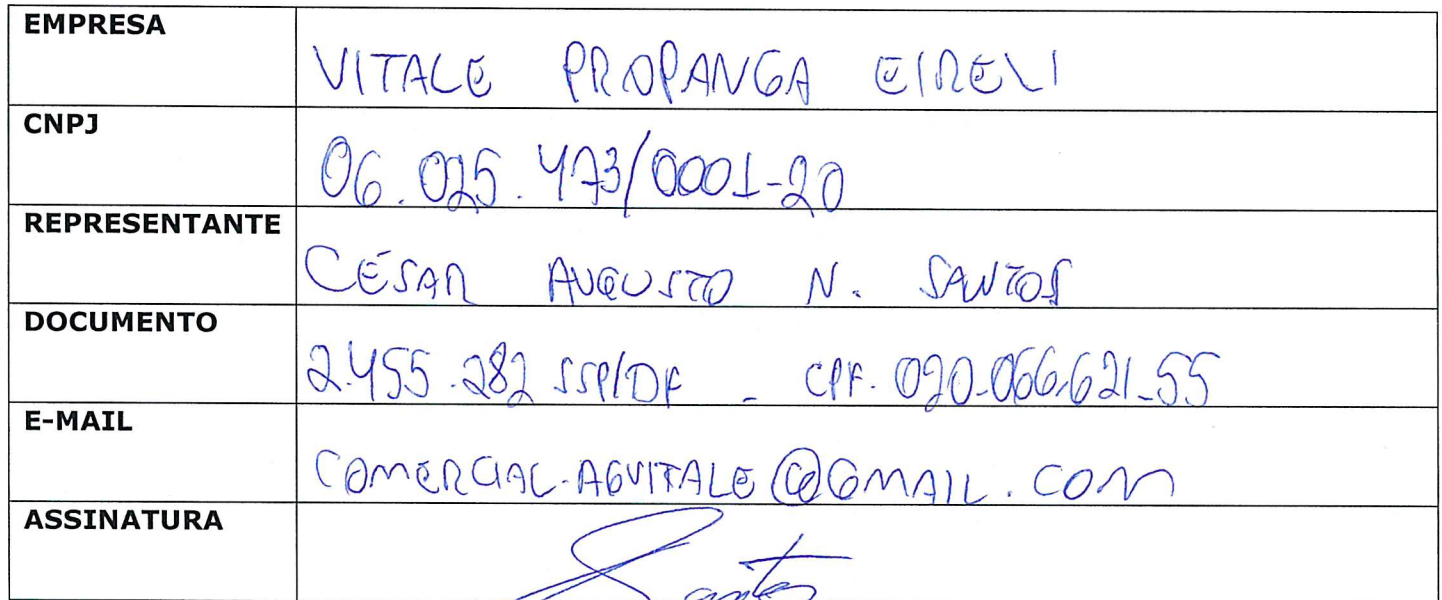 EMPRESA
VITALE PROPANGA EIRELI
CNPJ
06.025.473/0001-20
REPRESENTANTE
CÉSAR AUGUSTO N. SANTOS
DOCUMENTO
2.455.282 SSP/DF - CPF. 020.066.621-55
E-MAIL
COMERCIAL.AGVITALE@GMAIL.COM
ASSINATURA
Santos